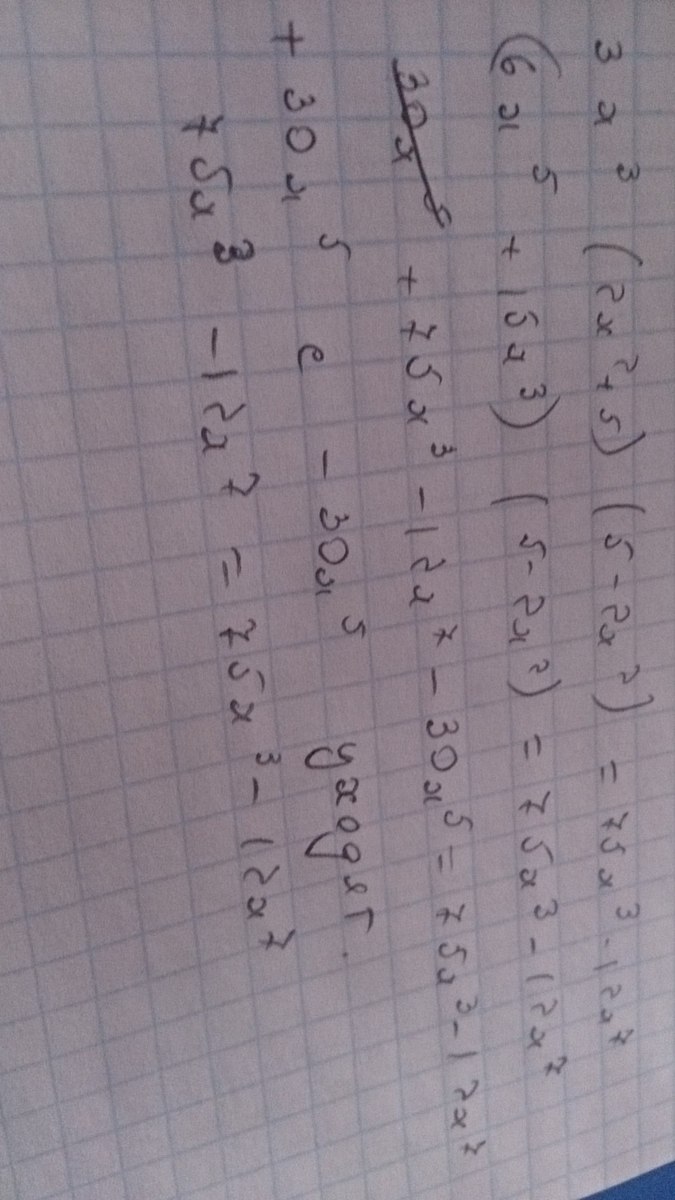 3x³ (2x²+5) (5-2x²) = 75x³-12x⁷
(6x⁵ + 15x³) (5-2x²) = 75x³-12x⁷
30x⁵ + 75x³ - 12x⁷ - 30x⁵ = 75x³-12x⁷
+ 30x⁵ с - 30x⁵ уходят.
75x³ - 12x⁷ = 75x³ - 12x⁷